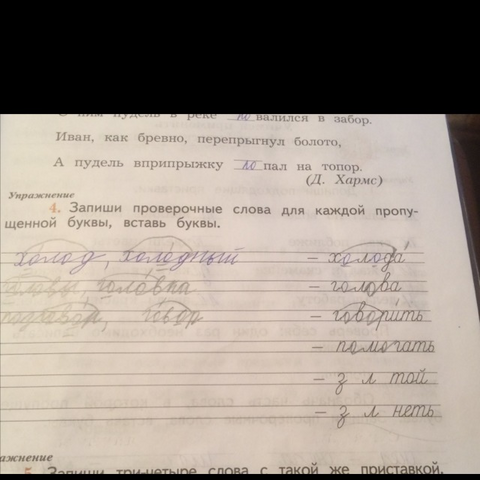 С ним пудель в реке по валился в забор.
Иван, как бревно, перепрыгнул болото,
А пудель вприпрыжку по пал на топор.
(Д. Хармс)
Упражнение
4. Запиши проверочные слова для каждой пропу-
щенной буквы, вставь буквы.
холод, холодный – холода́
головы, головка – голова
говор – говорить
– помогать
– з л той
– з л неть
ажнение
5. Запиши три-четыре слова с такой же приставкой,